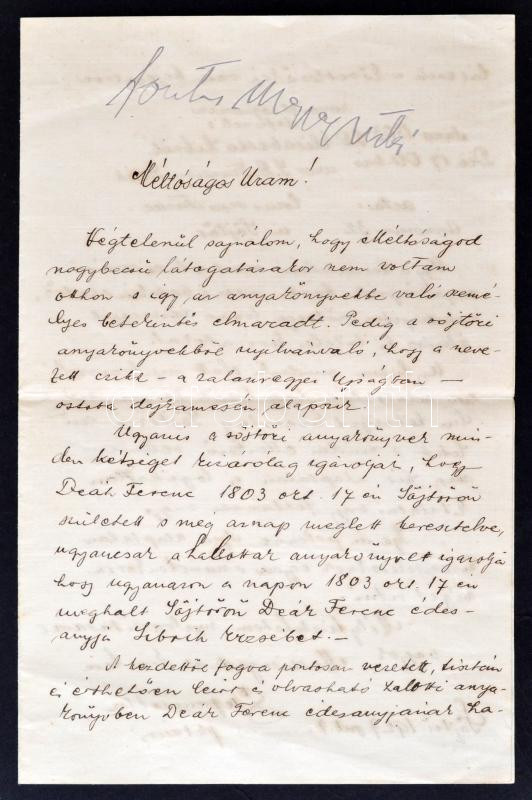 Méltóságos Uram!
Végtelenül sajnálom, hogy Méltóságod
nagybecsü látogatásakor nem voltam
otthon s így, az anyakönyvekbe való szemé-
lyes betekintés elmaradt. Pedig a söjtöri
anyakönyvekből nyilvánvaló, hogy a neve-
zett czikk – a zalamegyei Ujságban –
ostoba dajkamesén alapszik.
Ugyanis a söjtöri anyakönyvek min-
den kétséget kizárólag igazolják, hogy
Deák Ferenc 1803 okt. 17 én Söjtörön
született s még aznap meglett keresztelve,
ugyancsak a Halottak anyakönyve igazolja
hogy ugyanazon a napon 1803 okt. 17 én
meghalt Söjtörön Deák Ferenc édes-
anyja Sibrik Erzsébet. –
A kezdettől fogva pontosan vezetett, tisztán
és érthetően leírt és olvasható halotti anya-
könyvben Deák Ferenc édesanyjának ha-
darabanth